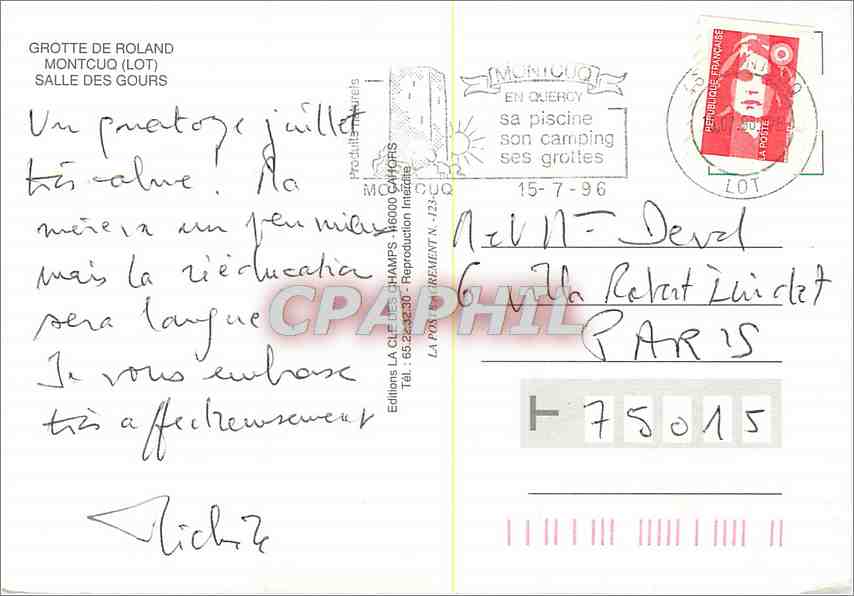 GROTTE DE ROLAND
MONTCUQ (LOT)
SALLE DES GOURS
Un quatorze juillet
très calme ! Ma
mère va un peu mieux
mais la rééducation
sera longue
Je vous embrasse
très affectueusement
Michèle
Produits naturels
MONTCUQ
MONTCUQ
EN QUERCY
sa piscine
son camping
ses grottes
15-7-96
REPUBLIQUE FRANÇAISE
LA POSTE
LOT
Editions LA CLE DES CHAMPS - 46000 CAHORS
Tél. : 65.22.32.30 - Reproduction Interdite
LA POSTE AGREMENT N. -123-
M et Mme Deval
6 villa Robert Lindet
PARIS
75015
CPAPHIL